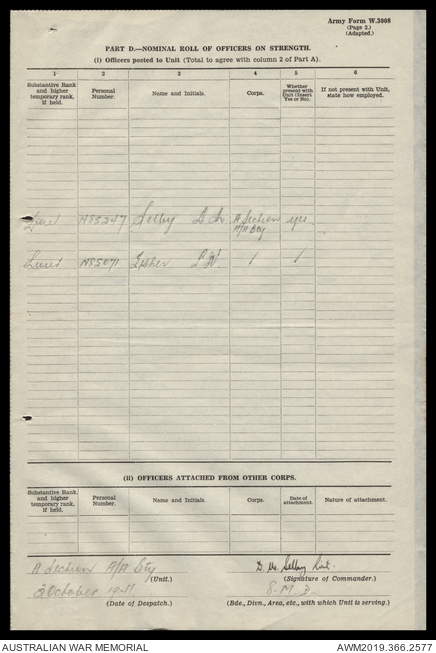 Army Form W.3008
(Page 2.)
(Adapted.)
PART D.—NOMINAL ROLL OF OFFICERS ON STRENGTH.
(i) Officers posted to Unit (Total to agree with column 2 of Part A).
1 2 3 4 5 6
Substantive Rank and higher temporary rank, if held. Personal Number. Name and Initials. Corps. Whether present with Unit (Insert Yes or No). If not present with Unit, state how employed.
Lieut NX5247 Selby D M A Section yes
A/A Bty
Lieut Fisher / /
(ii) OFFICERS ATTACHED FROM OTHER CORPS.
Substantive Rank and higher temporary rank, if held. Personal Number. Name and Initials. Corps. Date of attachment. Nature of attachment.
A Section A/A Bty
(Unit.)
D. M. Selby Lieut.
(Signature of Commander.)
October
(Date of Despatch.)
8. M. D.
(Bde., Divn., Area, etc., with which Unit is serving.)
AUSTRALIAN WAR MEMORIAL
AWM2019.366.2577